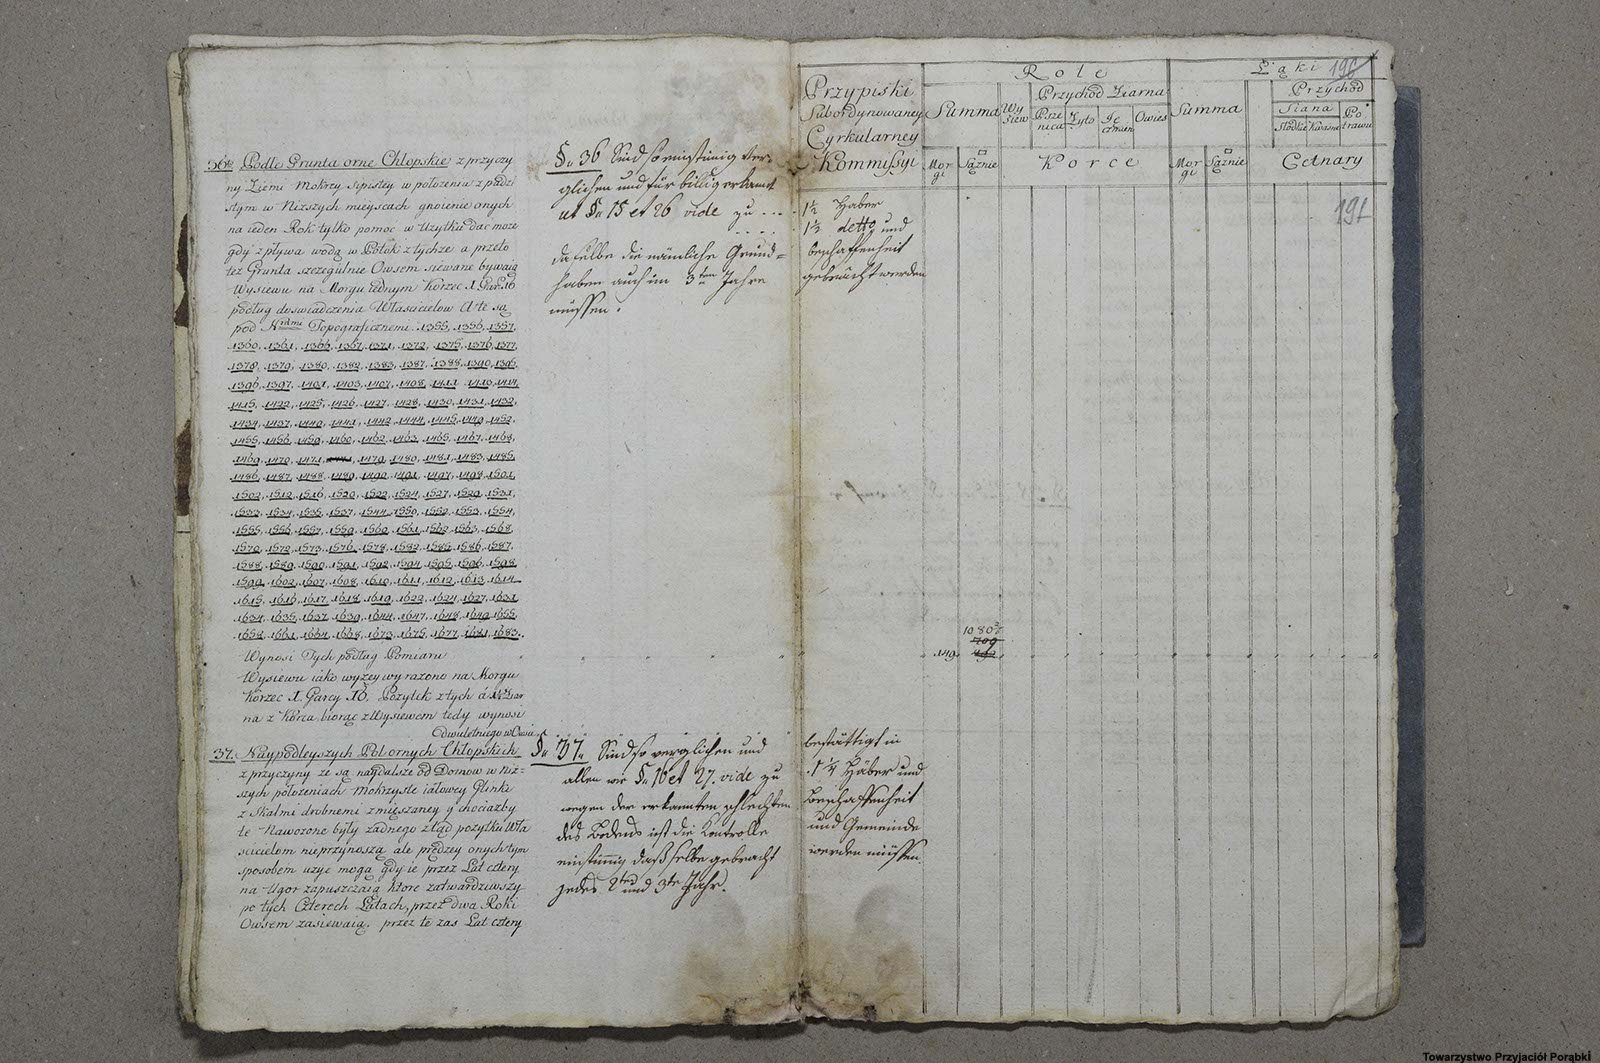 36te Podłe Grunta orne Chłopskie z przyczy
ny Ziemi Mokrzy Sipistey w położeniu z padzi
stym w Niższych mieyscach gnoienie onych
na ieden Rok tylko pomoc w Uzytku dac moze
gdy zpływa wodą w Potok z tychze a przeto
tez Grunta szczegulnie Owsem siewane bywaią
Wysiewu na Morgu iednym Korzec 1. Gar. 16
podług doswiadczenia Własciciełow A te są
pod Nrami Topograficznemi 1355, 1356, 1357,
1360, 1361, 1366, 1367, 1371, 1372, 1375, 1376, 1377,
1378, 1379, 1380, 1382, 1383, 1387, 1388, 1390, 1395,
1396, 1397, 1401, 1403, 1407, 1408, 1411, 1414,
1415, 1422, 1425, 1426, 1427, 1428, 1430, 1431, 1432,
1434, 1437, 1440, 1441, 1442, 1444, 1445, 1449, 1452,
1455, 1456, 1459, 1460, 1462, 1463, 1465, 1467, 1468,
1469, 1470, 1471, 1479, 1480, 1481, 1483, 1485,
1486, 1487, 1488, 1489, 1490, 1491, 1497, 1498, 1501,
1502, 1512, 1516, 1520, 1522, 1524, 1527, 1529, 1531,
1533, 1534, 1535, 1537, 1544, 1550, 1552, 1553, 1554,
1555, 1556, 1557, 1559, 1560, 1561, 1562, 1563, 1568,
1570, 1572, 1573, 1576, 1578, 1582, 1585, 1586, 1587,
1588, 1589, 1590, 1591, 1592, 1594, 1595, 1596, 1598,
1599, 1602, 1607, 1608, 1610, 1611, 1612, 1613, 1614,
1615, 1616, 1617, 1618, 1619, 1622, 1624, 1627, 1631,
1634, 1635, 1637, 1639, 1644, 1647, 1648, 1649, 1655,
1658, 1661, 1664, 1668, 1673, 1675, 1677, 1681, 1683.
Wynosi Tych podług Pomiaru
Wysiewu iako wyzey wyrazono na Morgu
Korzec 1. Garcy 16. Pozytek z tych á
na z Korca biorąc z Wysiewem tedy wynosi
Odwuletniego w Owsie
37. Naypodleyszych Pol ornych Chłopskich
z przyczyny ze są naydalsze od Domow w Niz=
szych położeniach Mokrzyste iałowcy Glinki
z Skałmi drobnemi zmięszaney y chociażby
te Nawozone były żadnego ztąd pozytku Wła
scicielom nieprzynoszą ale prędzey onych tym
sposobem uzyc mogą gdy ie przez Lat cztery
na Ugor zapuszczaią ktore zatwardziwszy
po tych Czterech Latach, przez dwa Roki
Owsem zasiewaią. przez te zas Lat cztery
§. 36 Sind so einstimig ver-
glichen und für billig erkannt
ut §. 15 et 26 vide zu
daselbe die nämliche Gründ=
haben auch im 3ten Jahre
müssen.
§. 37. Sind so verglichen und
allen wie §. 16 et 27. vide zu
wegen der erkannten schlechten
des Bodens ist die Kontrolle
einstimig daß selbe gebracht
jedes 2te und 3te Jahr.
Przypiski
Subordynowaney
Cyrkularney
Kommissyi
1½ Haber
1½ detto und
beschaffenheit
gebracht werden
bestättigt in
1¼ Haber und
Beschaffenheit
und Gemeinde
werden müssen.
Role
Summa
Wy
siew
Przychod Ziarna
Psze
nica
Zyto
Ję
czmien
Owies
Mor
gi
Sąznie
Korce
1080
149.
Łąki
196
Summa
Przychod
Siana
Słodkie
Kwasne
Po
trawu
Mor
gi
Sąznie
Cetnary
191
Towarzystwo Przyjaciół Porąbki